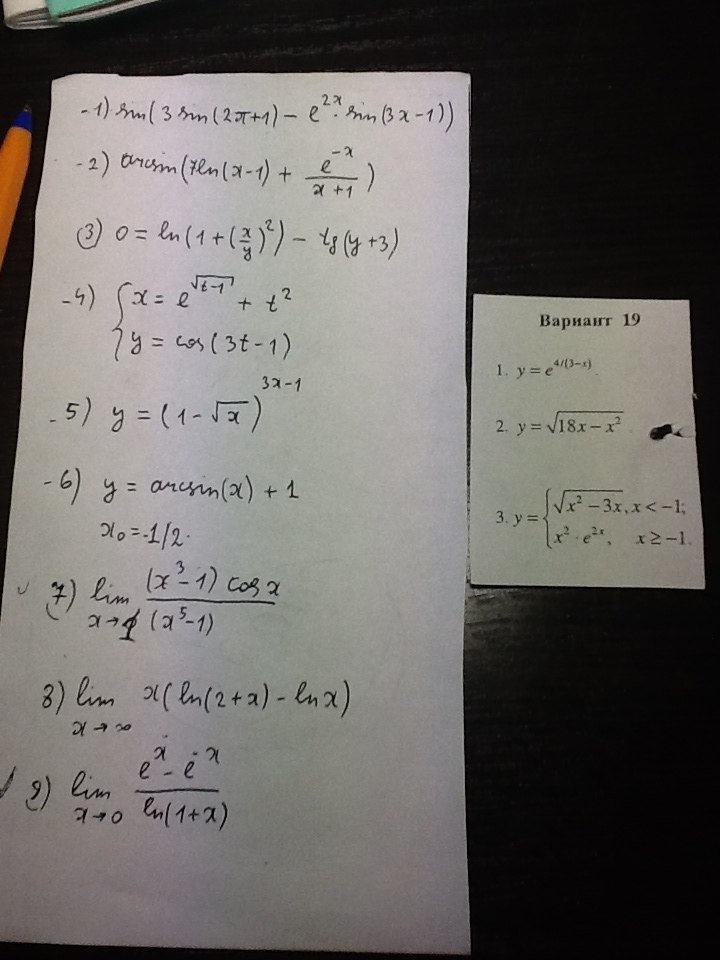 -1) sin(3 sin(2π+1) - e^{2x}·sin(3x-1))
-2) arcsin(7ln(x-1) + \frac{e^{-x}}{x+1})
(3) 0 = ln(1+(\frac{x}{y})^2) - tg(y+3)
-4) { x = e^{\sqrt{t-1}} + t^2
y = cos(3t-1)
-5) y = (1-√x)^{3x-1}
-6) y = arcsin(x) + 1
x_0 = -1/2.
7) lim_{x→1} \frac{(x^3-1) cos x}{(x^5-1)}
8) lim_{x→∞} x(ln(2+x) - ln x)
9) lim_{x→0} \frac{e^x - e^{-x}}{ln(1+x)}
Вариант 19
1. y = e^{4/(3-x)}.
2. y = \sqrt{18x - x^2}
3. y = { \sqrt{x^2 - 3x}, x < -1;
x^2 · e^{2x}, x ≥ -1.